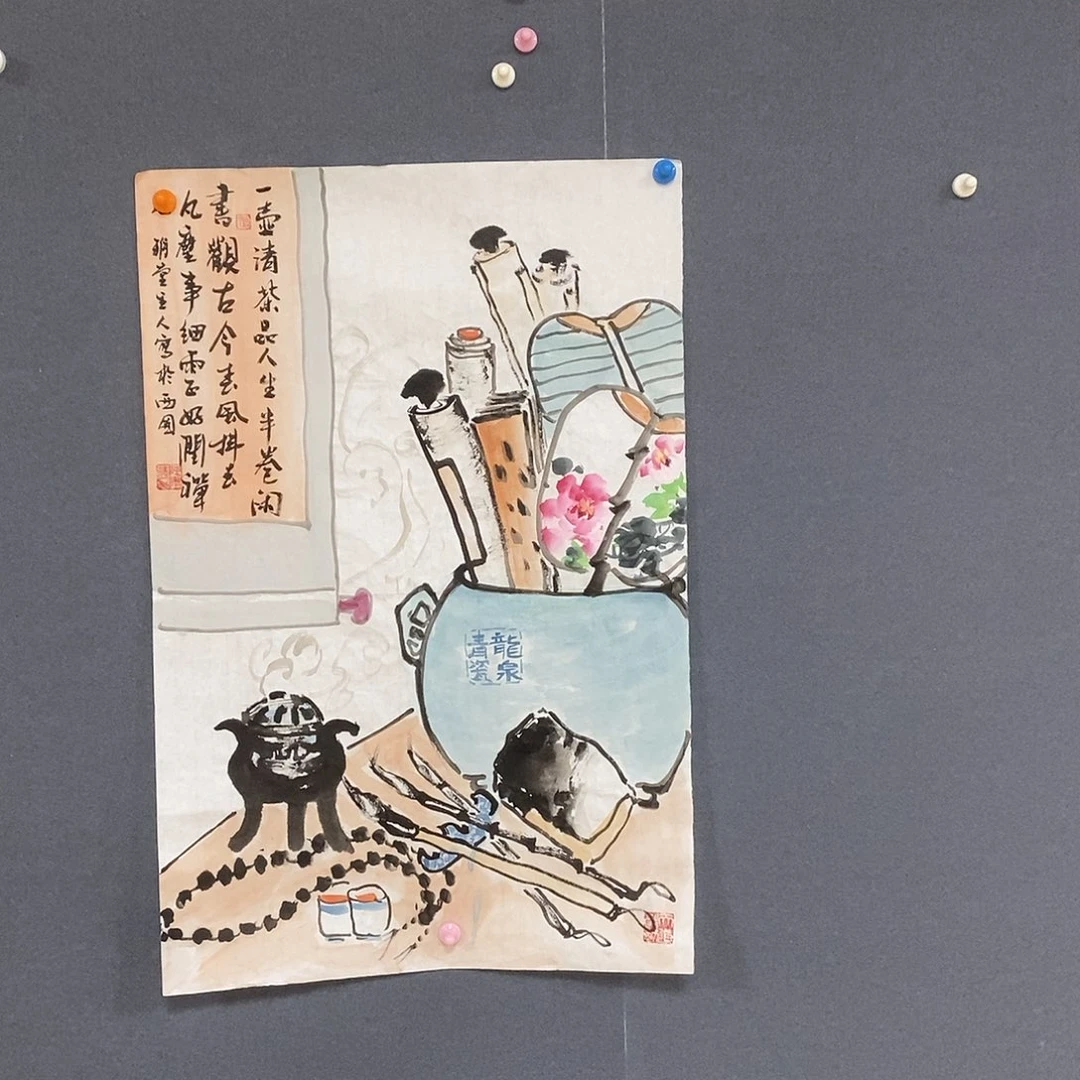 一壺清茶品人生半卷闲
書觀古今春風抖去
凡塵事細雨正好聞禪
堂主人寫於西園
龍泉
青瓷